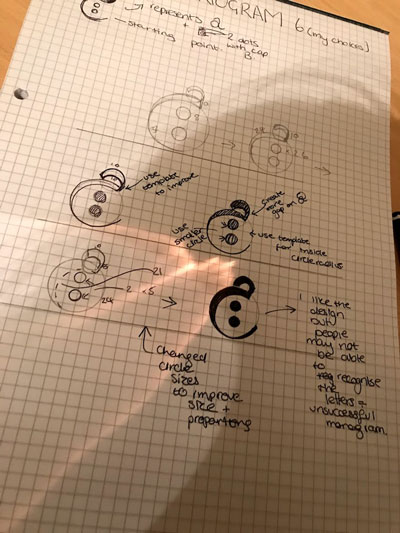 MONOGRAM 6 (my choices)
→ represents a
+ 2 dots
starting point with cap
10
8
24
10
26
10
use
template
to improve
create
more
gap on a
use
smaller
circle
use template
for inside
circle radius
10
21
2
24
.5
changed
circle
sizes
to improve
size +
proportions
I like the
design
but
people
may not
be able
to
recognise
the
letters =
unsuccessful
monogram